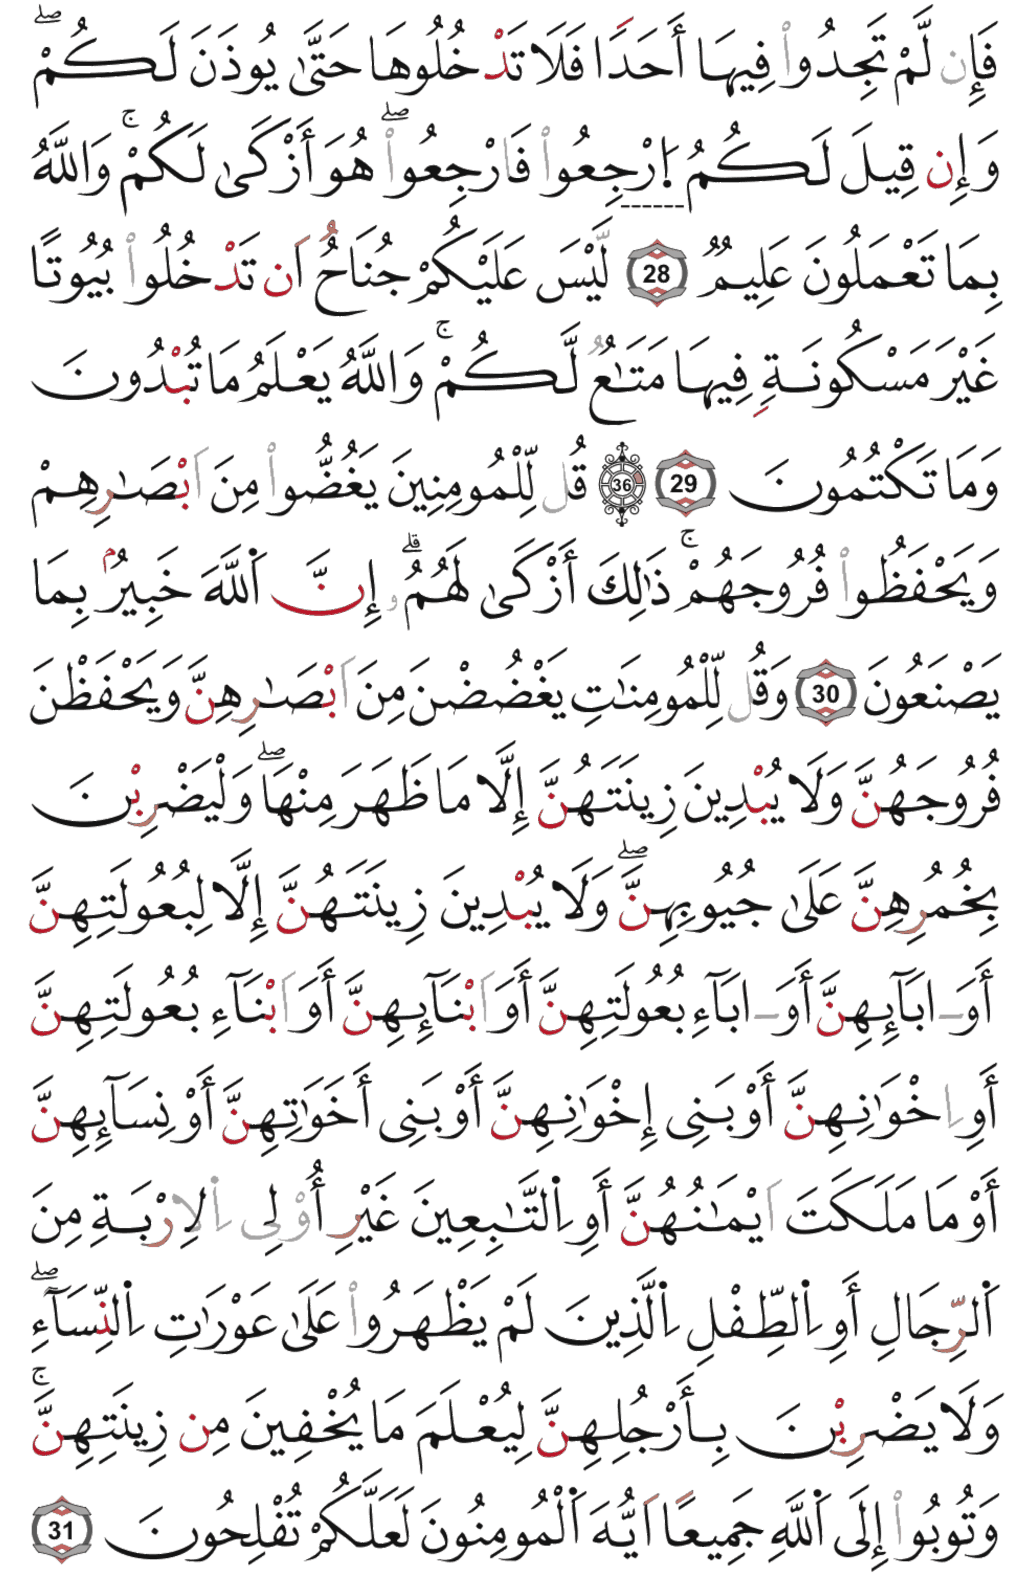 فَإِن لَّمْ تَجِدُواْ فِيهَا أَحَدًا فَلَا تَدْخُلُوهَا حَتَّىٰ يُوذَنَ لَكُمْۖ
وَإِن قِيلَ لَكُمُ اِ۪رْجِعُواْ فَارْجِعُواْۖ هُوَ أَزْكَىٰ لَكُمْۚ وَاللَّهُ
بِمَا تَعْمَلُونَ عَلِيمٌ 28 لَّيْسَ عَلَيْكُمْ جُنَاحٌ اَن تَدْخُلُواْ بُيُوتًا
غَيْرَ مَسْكُونَةٍ فِيهَا مَتَـٰعٌ لَّكُمْۚ وَاللَّهُ يَعْلَمُ مَا تُبْدُونَ
وَمَا تَكْتُمُونَ 29 36 قُل لِّلْمُومِنِينَ يَغُضُّواْ مِنَ اَبْصَـٰرِهِمْ
وَيَحْفَظُواْ فُرُوجَهُمْۚ ذَٰلِكَ أَزْكَىٰ لَهُمُۥٓۗ إِنَّ اَللَّهَ خَبِيرُۢ بِمَا
يَصْنَعُونَ 30 وَقُل لِّلْمُومِنَـٰتِ يَغْضُضْنَ مِنَ اَبْصَـٰرِهِنَّ وَيَحْفَظْنَ
فُرُوجَهُنَّ وَلَا يُبْدِينَ زِينَتَهُنَّ إِلَّا مَا ظَهَرَ مِنْهَاۖ وَلْيَضْرِبْنَ
بِخُمُرِهِنَّ عَلَىٰ جُيُوبِهِنَّۖ وَلَا يُبْدِينَ زِينَتَهُنَّ إِلَّا لِبُعُولَتِهِنَّ
أَوَ ـ ابَآئِهِنَّ أَوَ ـ ابَآءِ بُعُولَتِهِنَّ أَوَ اَبْنَآئِهِنَّ أَوَ اَبْنَآءِ بُعُولَتِهِنَّ
أَوِ اِخْوَٰنِهِنَّ أَوْ بَنِى إِخْوَٰنِهِنَّ أَوْ بَنِى أَخَوَٰتِهِنَّ أَوْ نِسَآئِهِنَّ
أَوْ مَا مَلَكَتَ اَيْمَـٰنُهُنَّ أَوِ اِلتَّـٰبِعِينَ غَيْرِ أُوْلِى اِلِارْبَةِ مِنَ
اَلرِّجَالِ أَوِ اِلطِّفْلِ اِلَّذِينَ لَمْ يَظْهَرُواْ عَلَىٰ عَوْرَٰتِ اِلنِّسَآءِۖ
وَلَا يَضْرِبْنَ بِأَرْجُلِهِنَّ لِيُعْلَمَ مَا يُخْفِينَ مِن زِينَتِهِنَّۚ
وَتُوبُواْ إِلَى اَللَّهِ جَمِيعًا اَيُّهَ اَلْمُومِنُونَ لَعَلَّكُمْ تُفْلِحُونَ 31